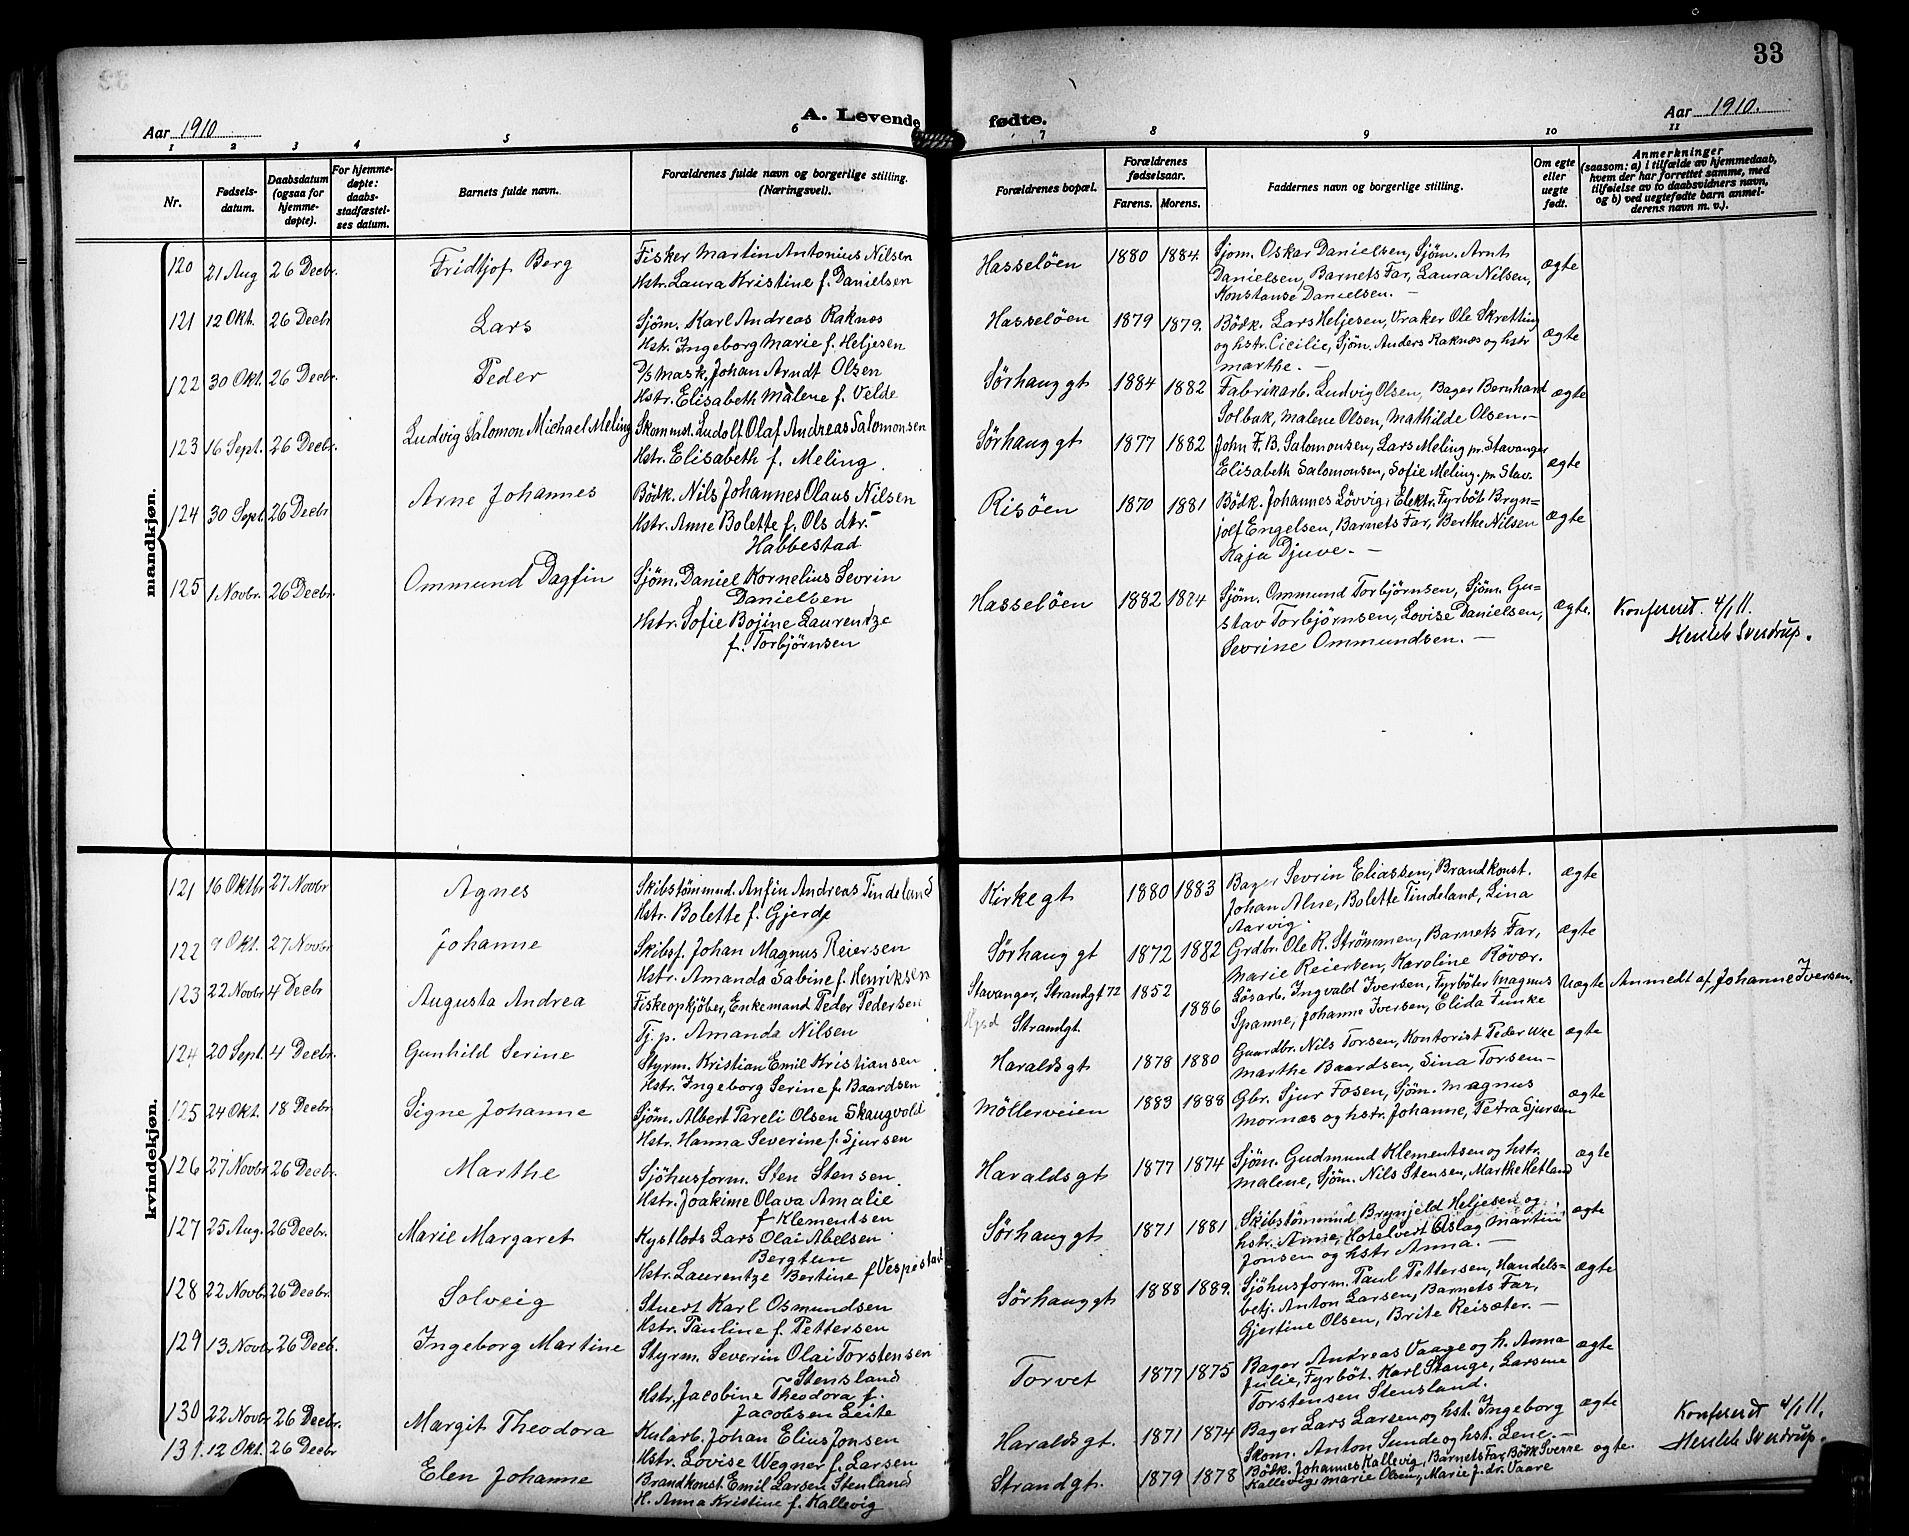 33
Aar 1910 A. Levende fødte. Aar 1910.
1 2 3 4 5 6 7 8 9 10 11
Nr. Fødsels-datum. Daabsdatum (ogsaa for hjemme-døpte). For hjemme-døpte: daabs-stadfæstel-ses datum. Barnets fulde navn. Forældrenes fulde navn og borgerlige stilling. (Næringsvei). Forældrenes bopæl. Forældrenes fødselsaar. Farens. Morens. Faddernes navn og borgerlige stilling. Om egte eller uegte født. Anmerkninger (saasom: a) i tilfælde av hjemmedaab, hvem der har forrettet samme, med tilføielse av to daabsvidners navn, og b) ved uegtefødte barn anmel-derens navn m. v.).
mandkjøn.
120 21 Aug 26 Decbr. Fridtjof Berg Fisker Martin Antonius Nilsen Hasseløen 1880 1884. Sjøm. Oskar Danielsen, Sjøm. Arnt ægte
Hstr. Laura Kristine f. Danielsen Danielsen, Barnets Far, Laura Nilsen,
Konstanse Danielsen. —
121 12 Okt. 26 Decbr Lars Sjøm. Karl Andreas Raknes Hasseløen 1879 1879. Bødk. Lars Heljesen, Vraker Ole Skretting ægte
Hstr. Ingeborg Marie f. Heljesen og hstr. Cicilie, Sjøm. Anders Raknæs og hstr
Marthe. —
122 30 Okt. 26 Decbr. Peder D/S Mask. Johan Arndt Olsen Sørhauggt 1884 1882 Fabrikarb. Ludvig Olsen, Bager Bernhard ægte
Hstr. Elisabeth Malene f. Velde Solbak, Malene Olsen, Mathilde Olsen.—
123 16 Sept. 26 Decbr. Ludvig Salomon Michael Meling Skommst. Ludolf Olaf Andreas Salomonsen Sørhauggt 1877 1882 John F. B. Salomonsen, Lars Meling pr. Stavanger ægte
Hstr. Elisabeth f. Meling. Elisabeth Salomonsen, Sofie Meling. pr Stav.
124 30 Sept. 26 Decbr Arne Johannes Bødk. Nils Johannes Olaus Nilsen Risøen 1870 1881 Bødk. Johannes Løvvig, Elektr. Fyrbøt. Bryn- ægte
Hstr. Anne Bolette f. Ols dtr. jolf Engelsen, Barnets Far, Berthe Nilsen
Habbestad Kaja Djuve. —
125 1 Novbr. 26 Decbr. Ommund Dagfin Sjøm. Daniel Kornelius Sevrin Hasseløen 1882 1884 Sjøm. Ommund Torbjørnsen, Sjøm. Gu- ægte. Konfereret 4/1 11.
Danielsen stav Torbjørnsen, Lovise Danielsen, Henrik Sverdrup.
Hstr. Sofie Bojine Laurentze Sevrine Ommundsen. —
f. Torbjørnsen
kvindekjøn.
121 16 Oktbr 27 Novbr Agnes Skibstømmd. Anfin Andreas Tindeland Kirkegt 1880 1883 Bager Sevrin Eliassen, Brandkonst. ægte
Hstr. Bolette f. Gjerde Johan Alne, Bolette Tindeland, Lina
Aarvig
122 9 Okt. 27 Novbr Johanne Skibsf. Johan Magnus Reiersen Sørhauggt 1872 1882 Grdbr. Ole R. Strømmen, Barnets Far, ægte
Hstr. Amanda Sabine f. Henriksen Marie Reiersen, Karoline Røvær.
123 22 Novbr 4 Decbr Augusta Andrea Fiskeopkjøber, Enkemand Peder Pedersen Stavanger, Strandgt 72 1852 Løsarb. Ingvald Iversen, Fyrbøter Magnus Uægte Anmeldt af Johanne Iversen.
Tj. p. Amanda Nilsen Hgsd Strandgt. 1886 Spanne, Johanne Iversen, Elida Funke
124 20 Sept. 4 Decbr. Gunhild Serine Styrm. Kristian Emil Kristiansen Haraldsgt 1878 1880 Gaardbr. Nils Torsen, Kontorist Peder Wee ægte
Hstr. Ingeborg Serine f. Baardsen Marthe Baardsen, Sina Torsen—
125 24 Okt. 18 Decbr. Signe Johanne Sjøm. Albert Pareli Olsen Skaugvold Möllerveien 1883 1888 Gbr. Sjur Fosen, Sjøm. Magnus ægte
Hstr. Hanna Severine f. Sjursen Mornæs og hstr. Johanne, Petra Sjursen
126 27 Novbr 26 Decbr. Marthe Sjøhusform. Sten Stensen Haraldsgt 1877 1874 Sjøm. Gudmund Klementsen og hstr. ægte
Hstr. Joakime Olava Amalie Malene, Sjøm. Nils Stensen, Marthe Hetland
f Klementsen
127 25 Aug. 26 Decbr. Marie Margaret Kystlods Lars Olai Abelsen Sørhauggt 1871 1881 Skibstømmd Brynjeld Heljesen og ægte
Bergtun hstr. Anne, Hotelvert Aslag Martin
Hstr. Laurentze Bertine f Vespestad Jonsen og hstr Anna. —
128 22 Novbr 26 Decbr. Solveig Stuert Karl Osmundsen Sørhauggt 1888 1889. Sjøhusform. Paul Pettersen, Handels- ægte
Hstr. Pauline f. Pettersen betj. Anton Larsen, Barnets Far,
Gjertine Olsen, Brite Reisæter. —
129 13 Novbr 26 Decb. Ingeborg Martine Styrm. Severin Olai Torstensen Torvet 1877 1875 Bager Andreas Vaage og h. Anna ægte
Stensland Julie, Fyrbøt. Karl Stange, Larsine
Hstr. Jacobine Theodora f. Torstensen Stensland.
Jacobsen Leite
130 22 Novbr 26 Decbr. Margit Theodora Kularb. Johan Elius Jonsen Haraldsgt. 1871 1874 Bager Lars Larsen og hst. Ingeborg ægte Konfereret 4/1 11.
Hstr. Lovise Wegner f. Larsen Skom. Anton Sunde og hst. Lene.— Henrik Sverdrup.
131. 12 Okt. 26 Decbr Elen Johanne Brandkonst. Emil Larsen Stenland Strandgt. 1879 1878 Bødk. Johannes Kallevig, Barnets Far, Bødk Sverre ægte.
H. Anna Kristine f. Kallevig Kallevig, Marie Olsen, Marie J. dr. Vaare